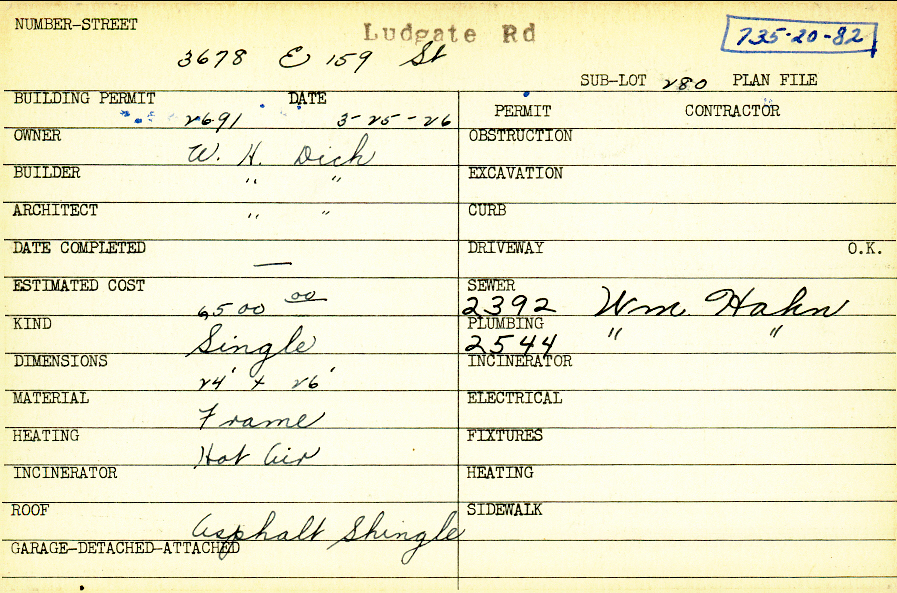 NUMBER-STREET Ludgate Rd 735-20-82
3678 E 159 St
SUB-LOT 280 PLAN FILE
BUILDING PERMIT DATE
2691 3-25-26
PERMIT CONTRACTOR
OWNER W. H. Dich
BUILDER " "
ARCHITECT " "
DATE COMPLETED —
ESTIMATED COST 6500 00
KIND Single
DIMENSIONS 24' x 26'
MATERIAL Frame
HEATING Hot Air
INCINERATOR
ROOF Asphalt Shingle
GARAGE-DETACHED-ATTACHED
OBSTRUCTION
EXCAVATION
CURB
DRIVEWAY O.K.
SEWER
2392 Wm. Hahn
PLUMBING
2544 " "
INCINERATOR
ELECTRICAL
FIXTURES
HEATING
SIDEWALK